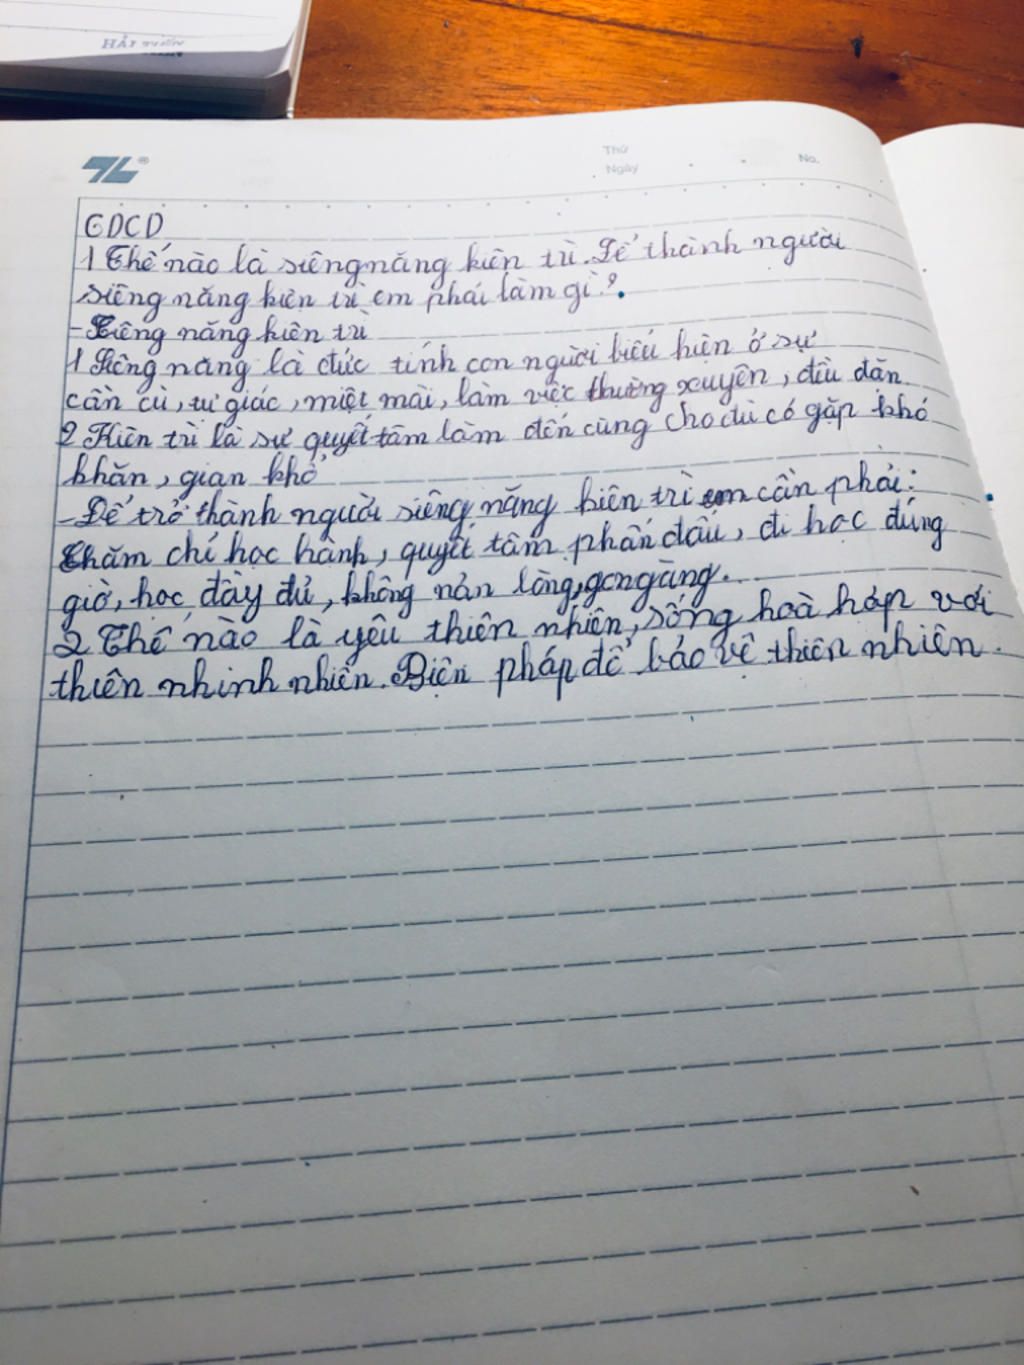 HẢI TIẾN
Thứ
Ngày
No.
GDCD
1 Thế nào là siêng năng kiên trì. Để thành người
siêng năng kiên trì em phải làm gì?.
- Siêng năng kiên trì
1 Siêng năng là đức tính con người biểu hiện ở sự
cần cù, tự giác, miệt mài, làm việc thường xuyên, đều đặn.
2 Kiên trì là sự quyết tâm làm đến cùng cho dù có gặp khó
khăn, gian khổ
- Để trở thành người siêng năng kiên trì em cần phải:
Chăm chỉ học hành, quyết tâm phấn đấu, đi học đúng
giờ, học đầy đủ, không nản lòng, gọn gàng.
2 Thế nào là yêu thiên nhiên, sống hoà hợp với
thiên nhinh nhiên. Biện pháp để bảo vệ thiên nhiên.